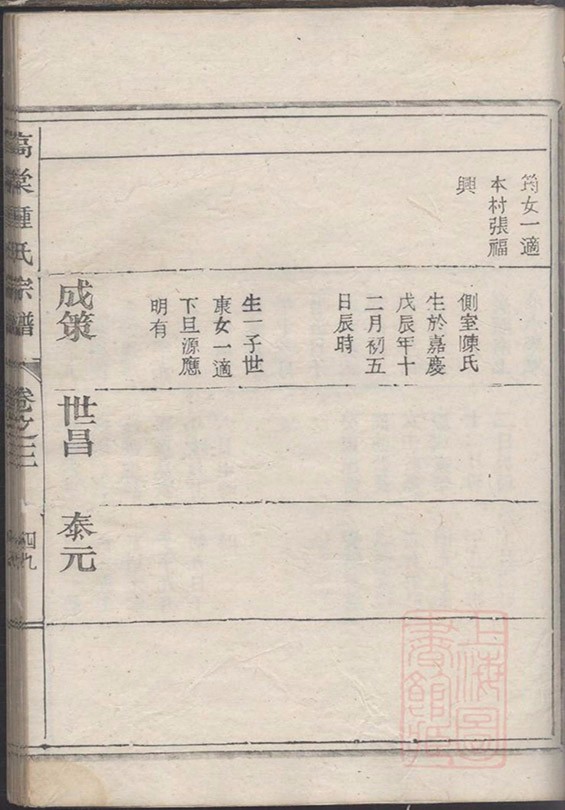 筠女一適
本村張福
興
側室陳氏
生於嘉慶
戊辰年十
二月初五
日辰時
生一子世
東女一適
下旦源應
明有
成策
世昌
泰元
氏宗譜
卷之三
四九
上海圖書館藏